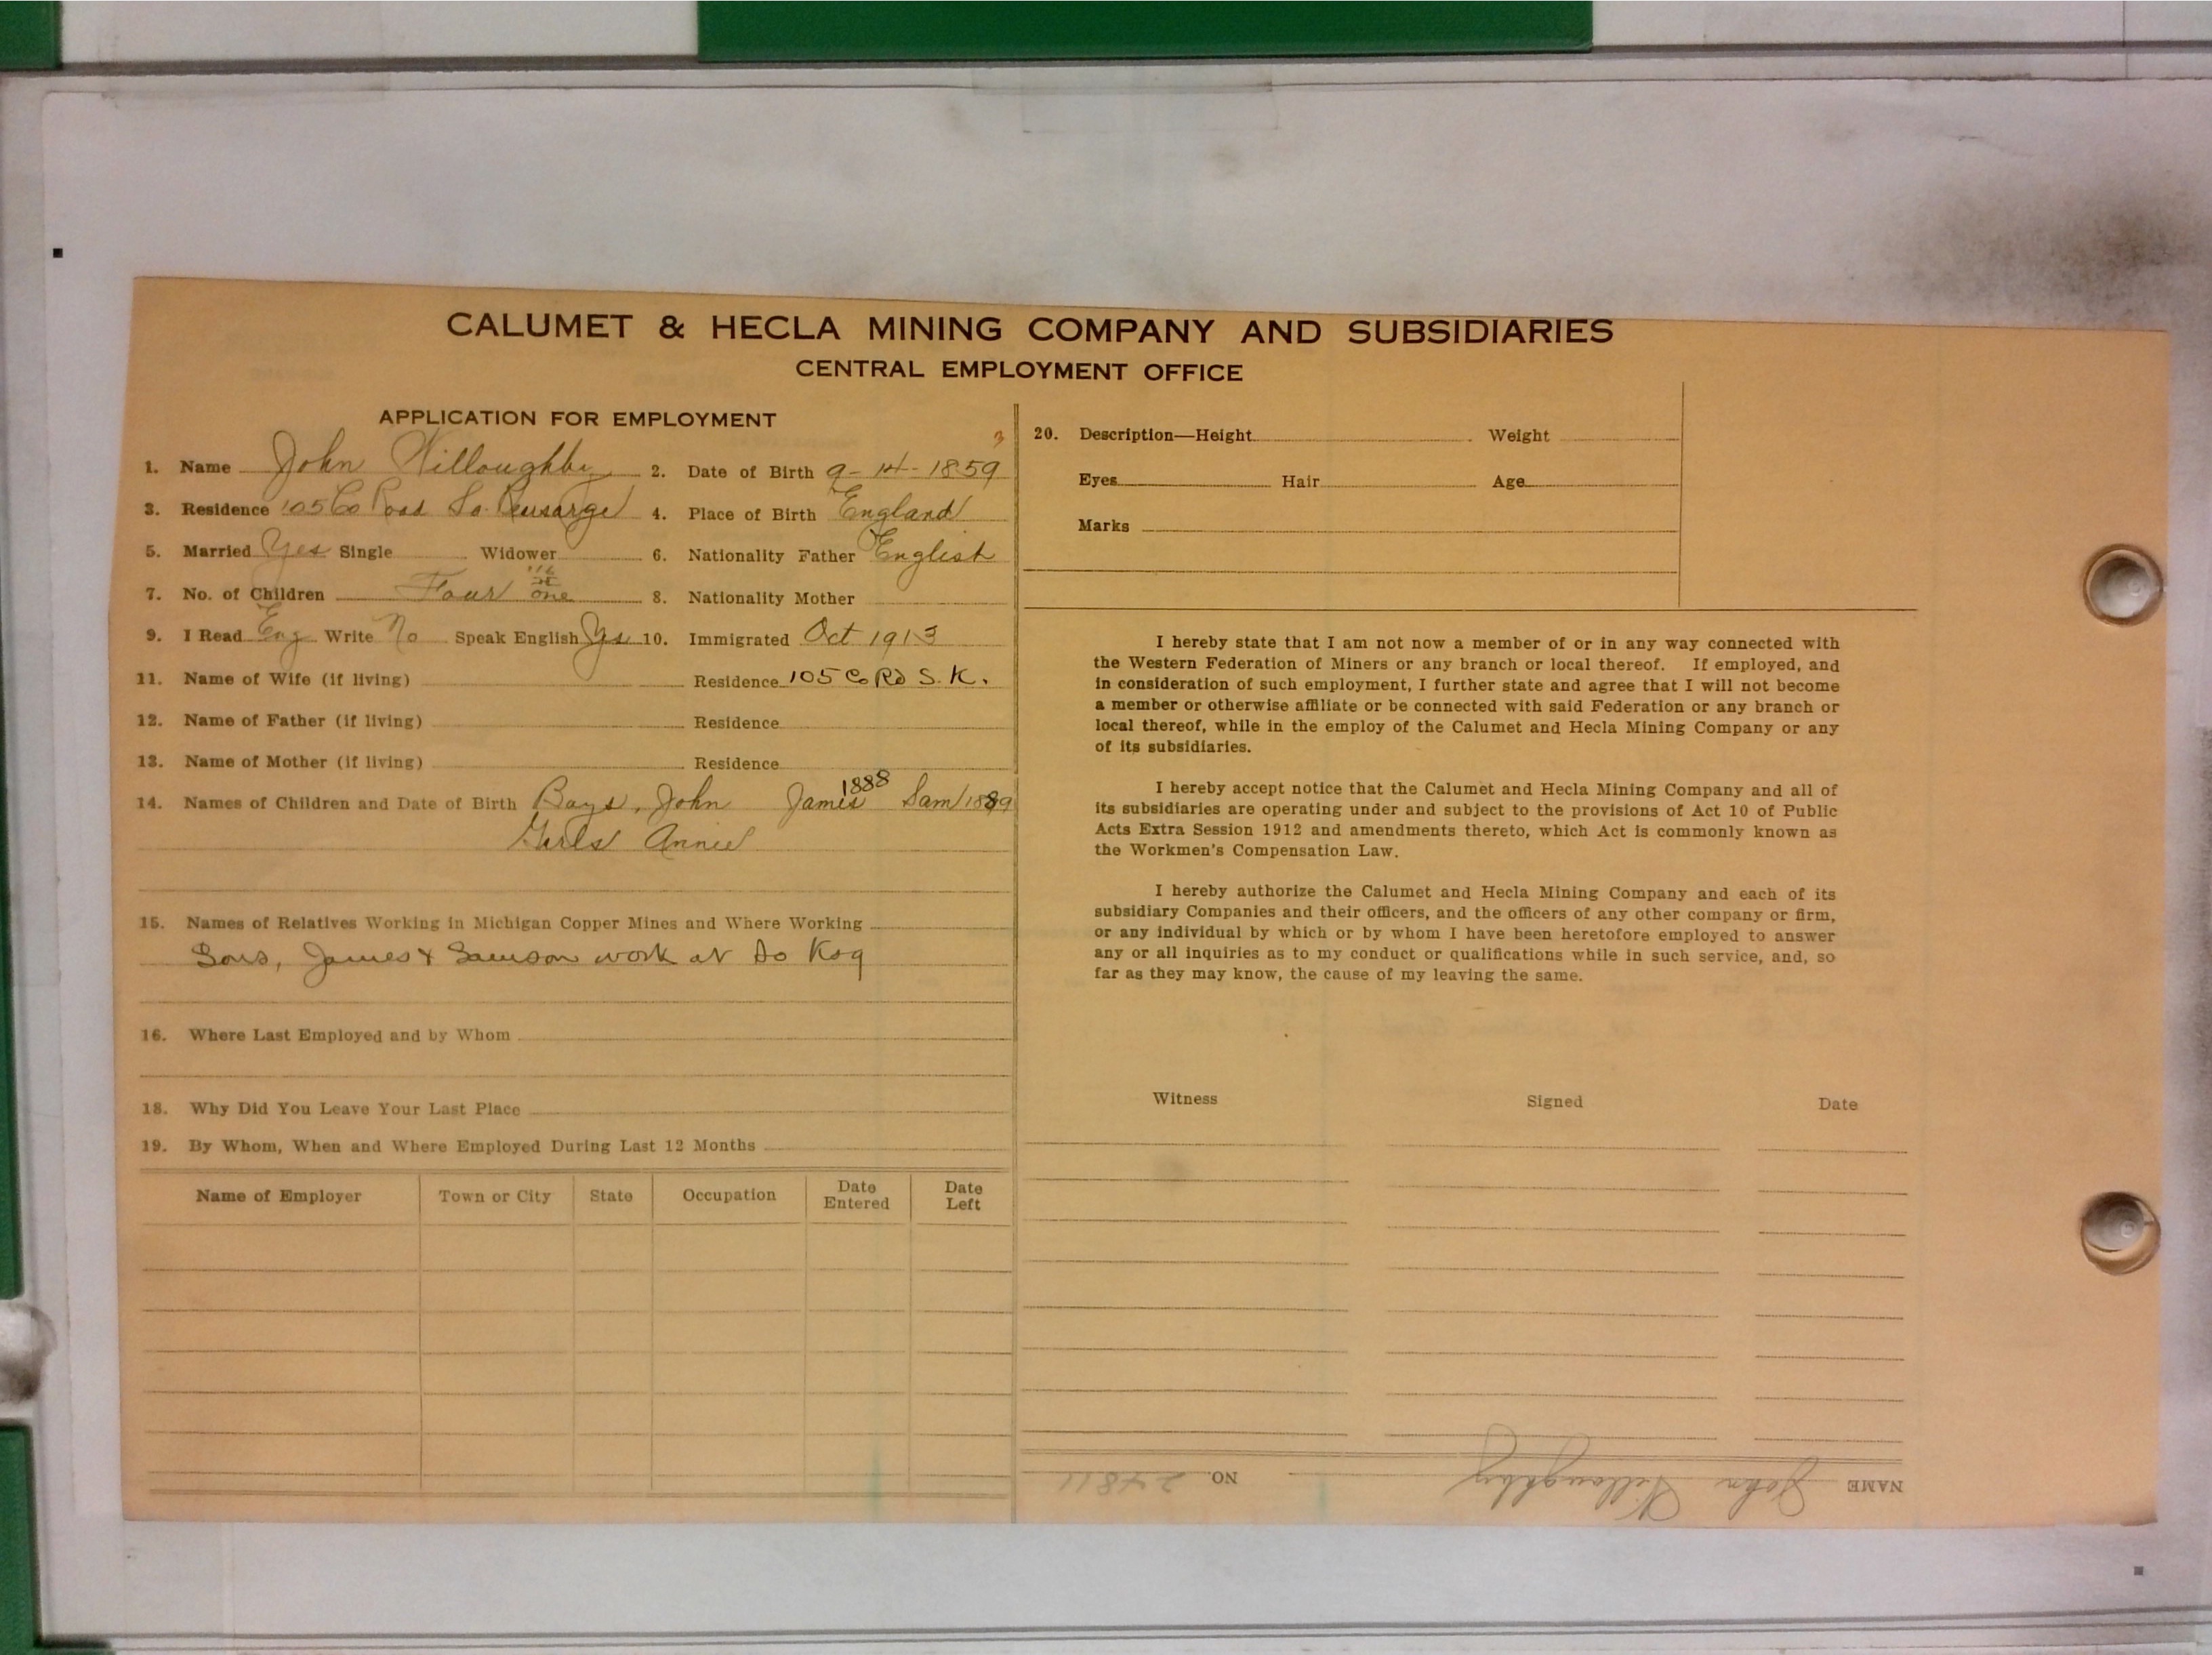 CALUMET & HECLA MINING COMPANY AND SUBSIDIARIES
CENTRAL EMPLOYMENT OFFICE
APPLICATION FOR EMPLOYMENT
3
1. Name John Willoughby 2. Date of Birth 9-14-1859
3. Residence 105 Co Road So. Kearsarge 4. Place of Birth England
5. Married Yes Single Widower 6. Nationality Father English
7. No. of Children Four one 8. Nationality Mother
9. I Read Eng Write No Speak English Yes 10. Immigrated Oct 1913
11. Name of Wife (if living) Residence 105 Co Rd S. K.
12. Name of Father (if living) Residence
13. Name of Mother (if living) Residence
14. Names of Children and Date of Birth Boys, John James 1888 Sam 1889
Girls Annie
15. Names of Relatives Working in Michigan Copper Mines and Where Working
Sons, James & Samson work at So Ksg
16. Where Last Employed and by Whom
18. Why Did You Leave Your Last Place
19. By Whom, When and Where Employed During Last 12 Months
Name of Employer Town or City State Occupation Date Entered Date Left
20. Description—Height Weight
Eyes Hair Age
Marks
I hereby state that I am not now a member of or in any way connected with
the Western Federation of Miners or any branch or local thereof. If employed, and
in consideration of such employment, I further state and agree that I will not become
a member or otherwise affiliate or be connected with said Federation or any branch or
local thereof, while in the employ of the Calumet and Hecla Mining Company or any
of its subsidiaries.
I hereby accept notice that the Calumet and Hecla Mining Company and all of
its subsidiaries are operating under and subject to the provisions of Act 10 of Public
Acts Extra Session 1912 and amendments thereto, which Act is commonly known as
the Workmen's Compensation Law.
I hereby authorize the Calumet and Hecla Mining Company and each of its
subsidiary Companies and their officers, and the officers of any other company or firm,
or any individual by which or by whom I have been heretofore employed to answer
any or all inquiries as to my conduct or qualifications while in such service, and, so
far as they may know, the cause of my leaving the same.
Witness Signed Date
NAME John Willoughby NO. 24811